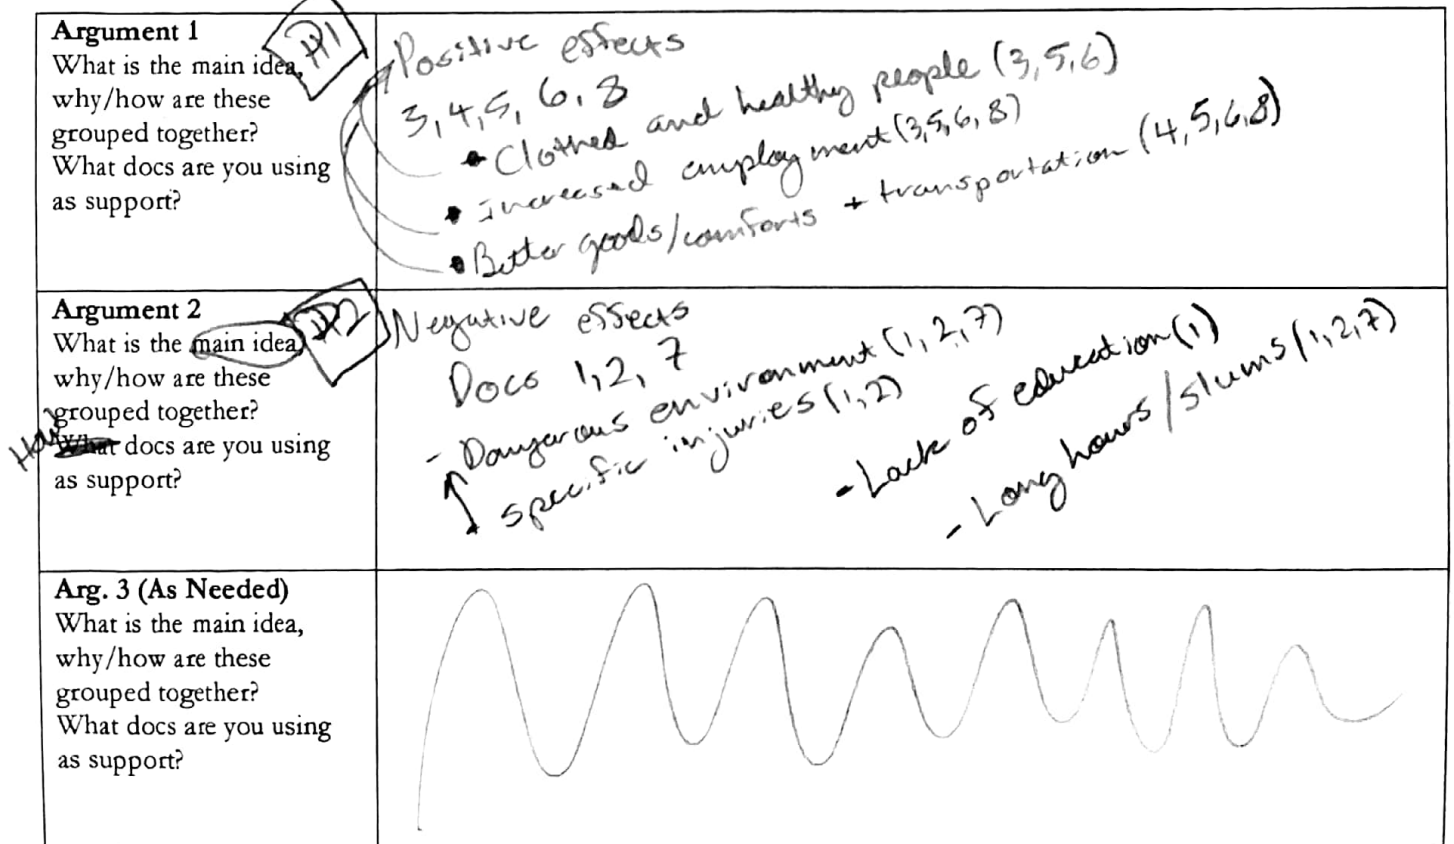 Argument 1
What is the main idea,
why/how are these
grouped together?
What docs are you using
as support?
Positive effects
3, 4, 5, 6, 8
• Clothed and healthy people (3,5,6)
• Increased employment (3,5,6,8)
• Better goods/comforts + transportation (4,5,6,8)
Argument 2
What is the main idea,
why/how are these
grouped together?
How
What docs are you using
as support?
Negative effects
Docs 1, 2, 7
- Dangerous environment (1, 2, 7)
specific injuries (1,2)
- Lack of education (1)
- Long hours/slums (1,2,7)
Arg. 3 (As Needed)
What is the main idea,
why/how are these
grouped together?
What docs are you using
as support?